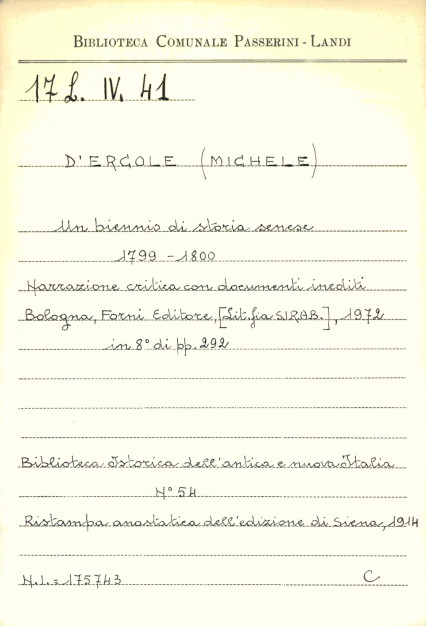 BIBLIOTECA COMUNALE PASSERINI - LANDI
17 L. IV. 41
D'ERCOLE (MICHELE)
Un biennio di storia senese
1799 - 1800
Narrazione critica con documenti inediti
Bologna, Forni Editore, [Lit.fia SIRAB.], 1972
in 8° di pp. 292
Biblioteca Istorica dell'antica e nuova Italia
N° 54
Ristampa anastatica dell'edizione di Siena, 1914
N.I. = 175743 C